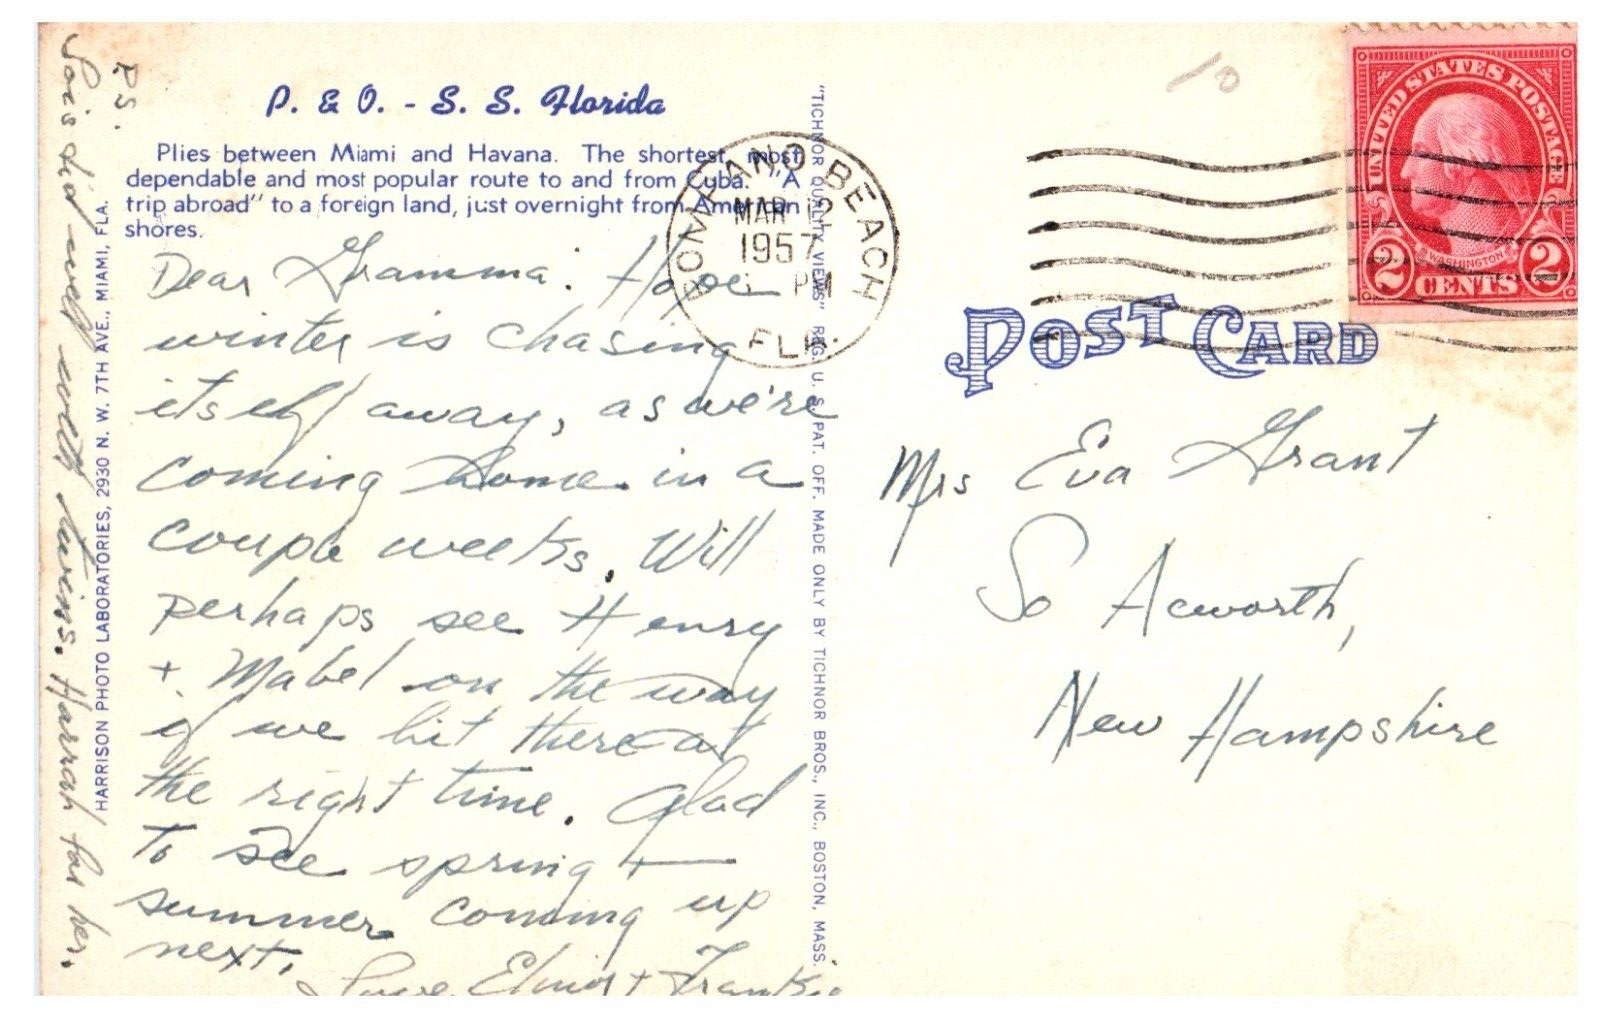 P. & O. - S. S. Florida
Plies between Miami and Havana. The shortest, most
dependable and most popular route to and from Cuba. "A
trip abroad" to a foreign land, just overnight from American
shores.
Dear Gramma: Hope
winter is chasing
itself away, as we're
coming home in a
couple weeks. Will
perhaps see Henry
+ Mabel on the way
if we hit there at
the right time. Glad
to see spring +
summer coming up
next.
Love, Elmer + Frankie
P.S.
Lois did well with twins. Harrah for her.
HARRISON PHOTO LABORATORIES, 2930 N. W. 7TH AVE., MIAMI, FLA.
"TICHNOR QUALITY VIEWS" REG. U. S. PAT. OFF. MADE ONLY BY TICHNOR BROS., INC., BOSTON, MASS.
POMPANO BEACH
MAR 12
1957
PM
FLA.
10
UNITED STATES POSTAGE
WASHINGTON
2 CENTS 2
POST CARD
Mrs Eva Grant
So Acworth,
New Hampshire